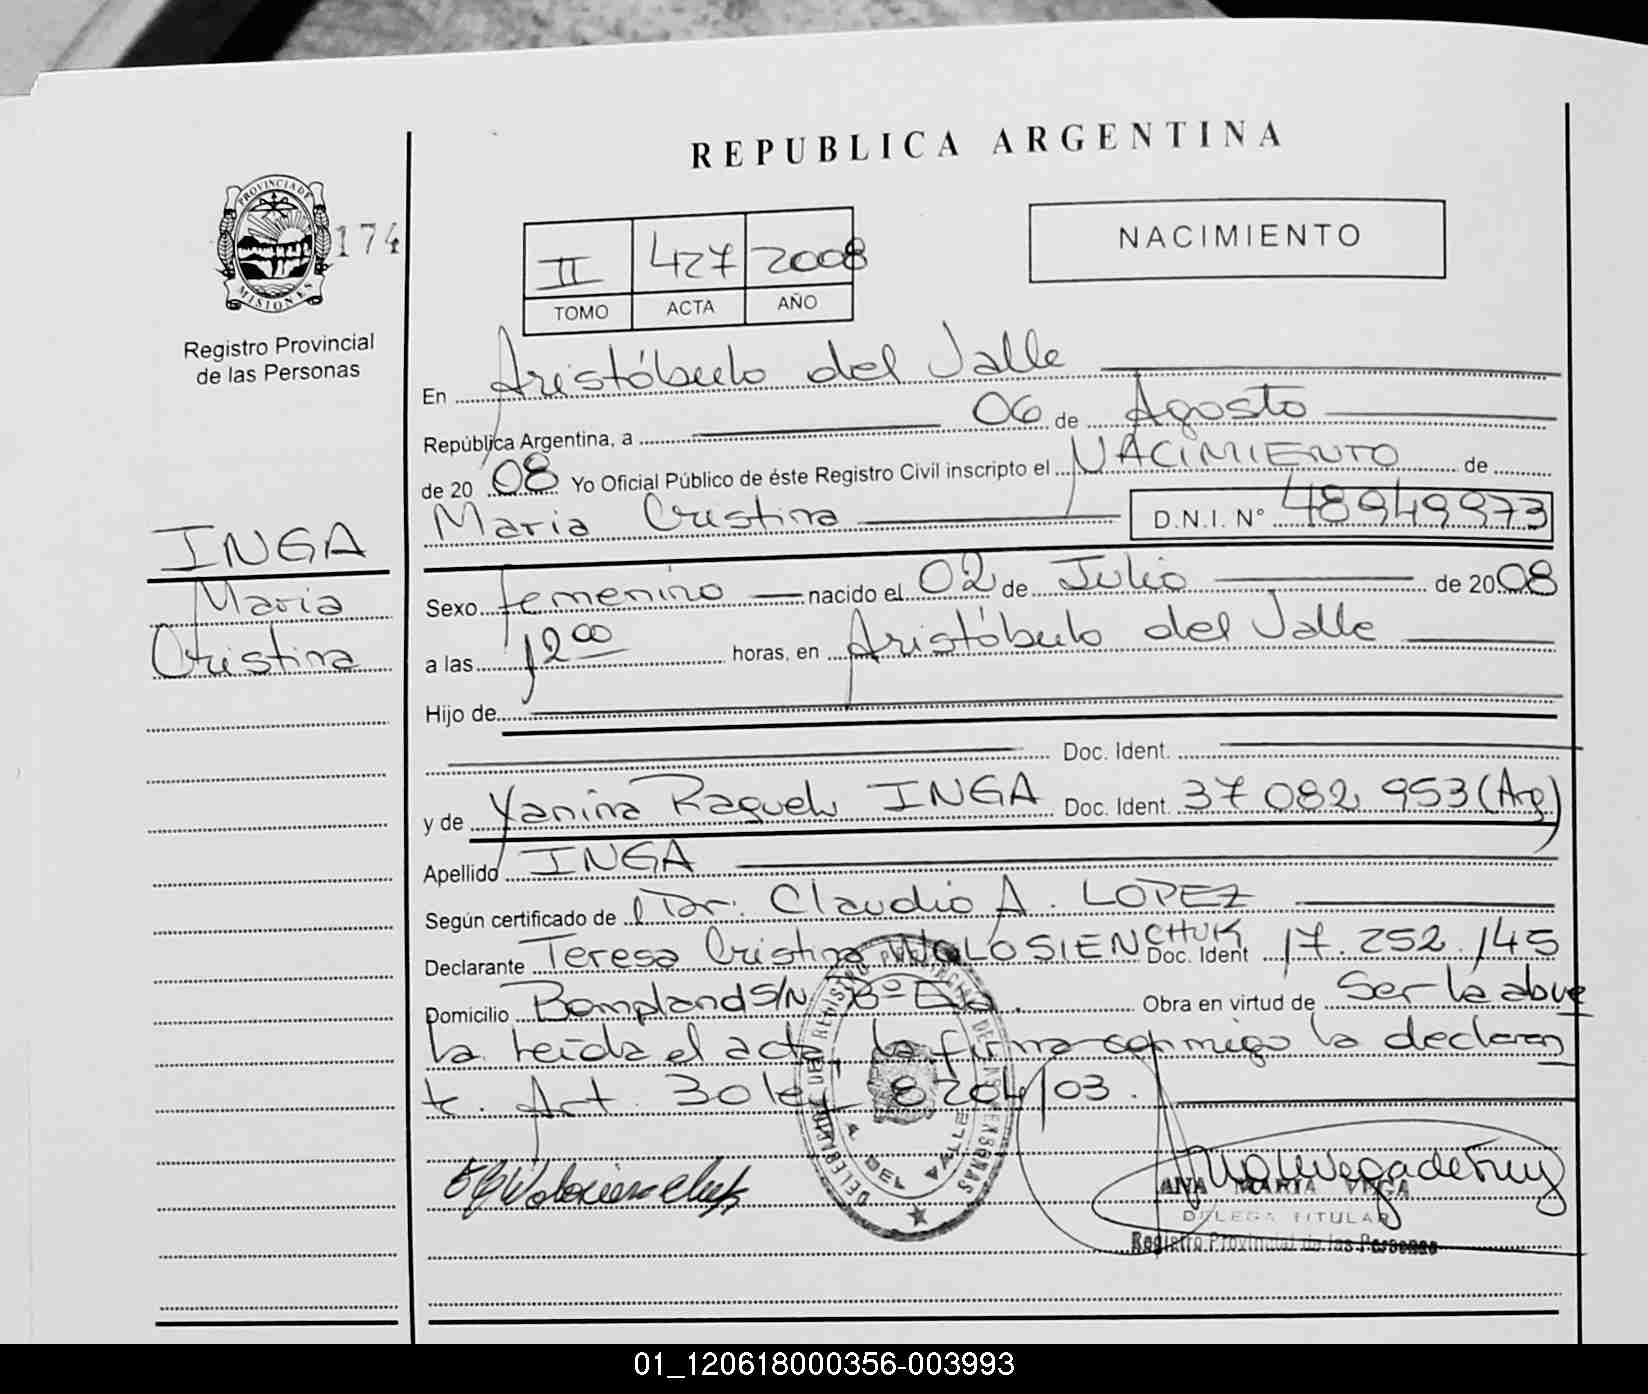 REPUBLICA ARGENTINA
PROVINCIA DE
MISIONES
174
Registro Provincial
de las Personas
II 427 2008
TOMO ACTA AÑO
NACIMIENTO
En Aristóbulo del Valle
República Argentina, a 06 de Agosto
de 20 08 Yo Oficial Público de éste Registro Civil inscripto el NACIMIENTO de
María Cristina D.N.I. Nº 48949973
INGA
María
Cristina
Sexo femenino nacido el 02 de Julio de 2008
a las 12 00 horas, en Aristóbulo del Valle
Hijo de
Doc. Ident.
y de Yanina Raquel INGA Doc. Ident. 37 082 953 (Arg)
Apellido INGA
Según certificado de Dr. Claudio A. LOPEZ
Declarante Teresa Cristina WOLOSIENCHUK Doc. Ident 17.252.145
Domicilio Bompland S/N Bº Obra en virtud de Ser la abue
la leída el acta, la firma conmigo la declaran
te. Art. 30 ley 8204/03.
A. DEL VALLE
ANA MARIA VEGA
DELEGA TITULAR
Registro Provincial de las Personas
01_120618000356-003993